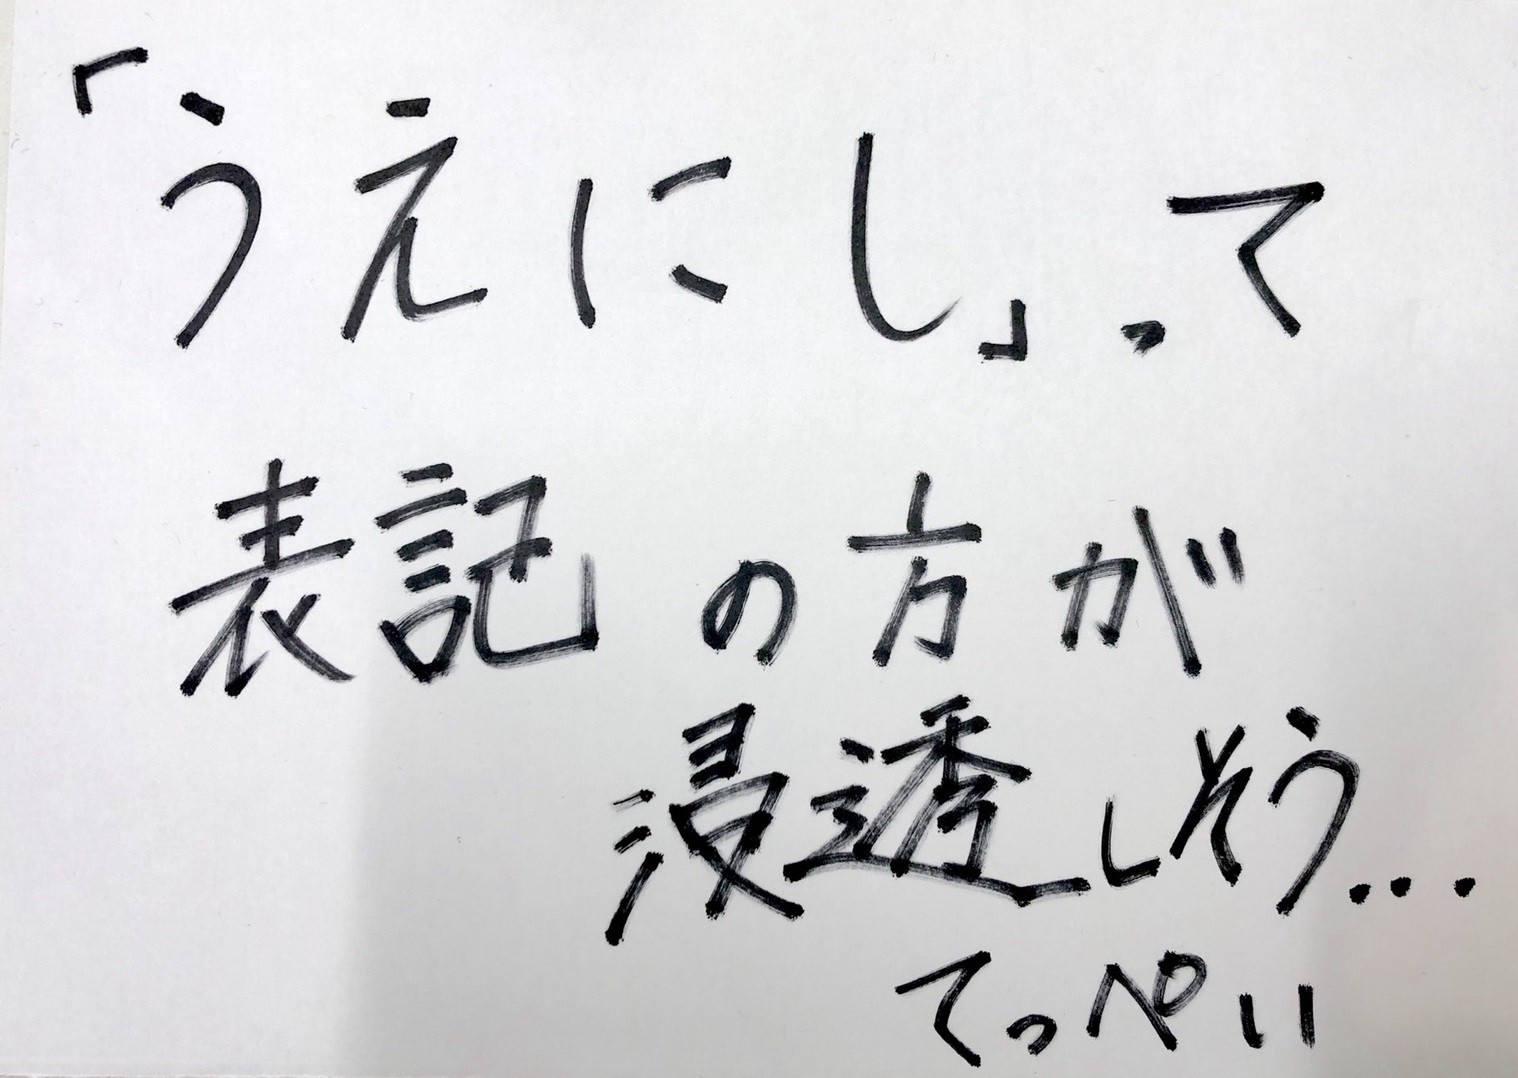 「うえにし」って
表記の方が
浸透しそう...
てっぺい